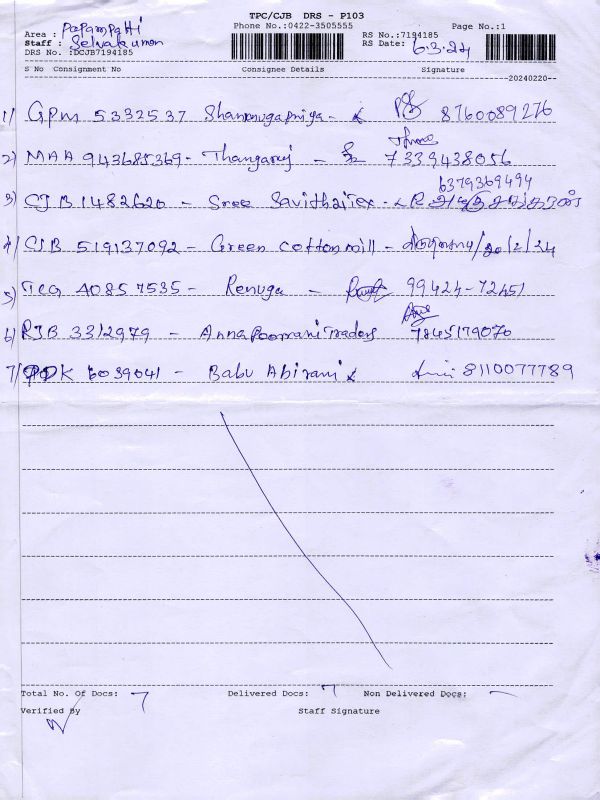 TPC/CJB DRS - P103
Phone No.:0422-3505555 Page No.:1
Area : Papampatti RS No.:7194185
Staff : Selvakumar RS Date: 6.3.24
DRS No. :DCJB7194185
S No Consignment No Consignee Details Signature
20240220--
1) GPM 5332537 Shanmugapriya - 8760089276
2) MAA 943685369 - Thangaraj - 7339438056
6379369494
3) CJB 1482620 - Sree Savithai Tex -
4) CJB 519137092 - Green cotton mill - /20/2/24
5) TCG 40857535 - Renuga - 99424-72451
6) RJB 3312979 - Annapoorani Traders 7845179070
7) PDK 6039041 - Babu Abirami 8110077789
Total No. Of Docs: 7 Delivered Docs: 7 Non Delivered Docs: -
Verified By Staff Signature